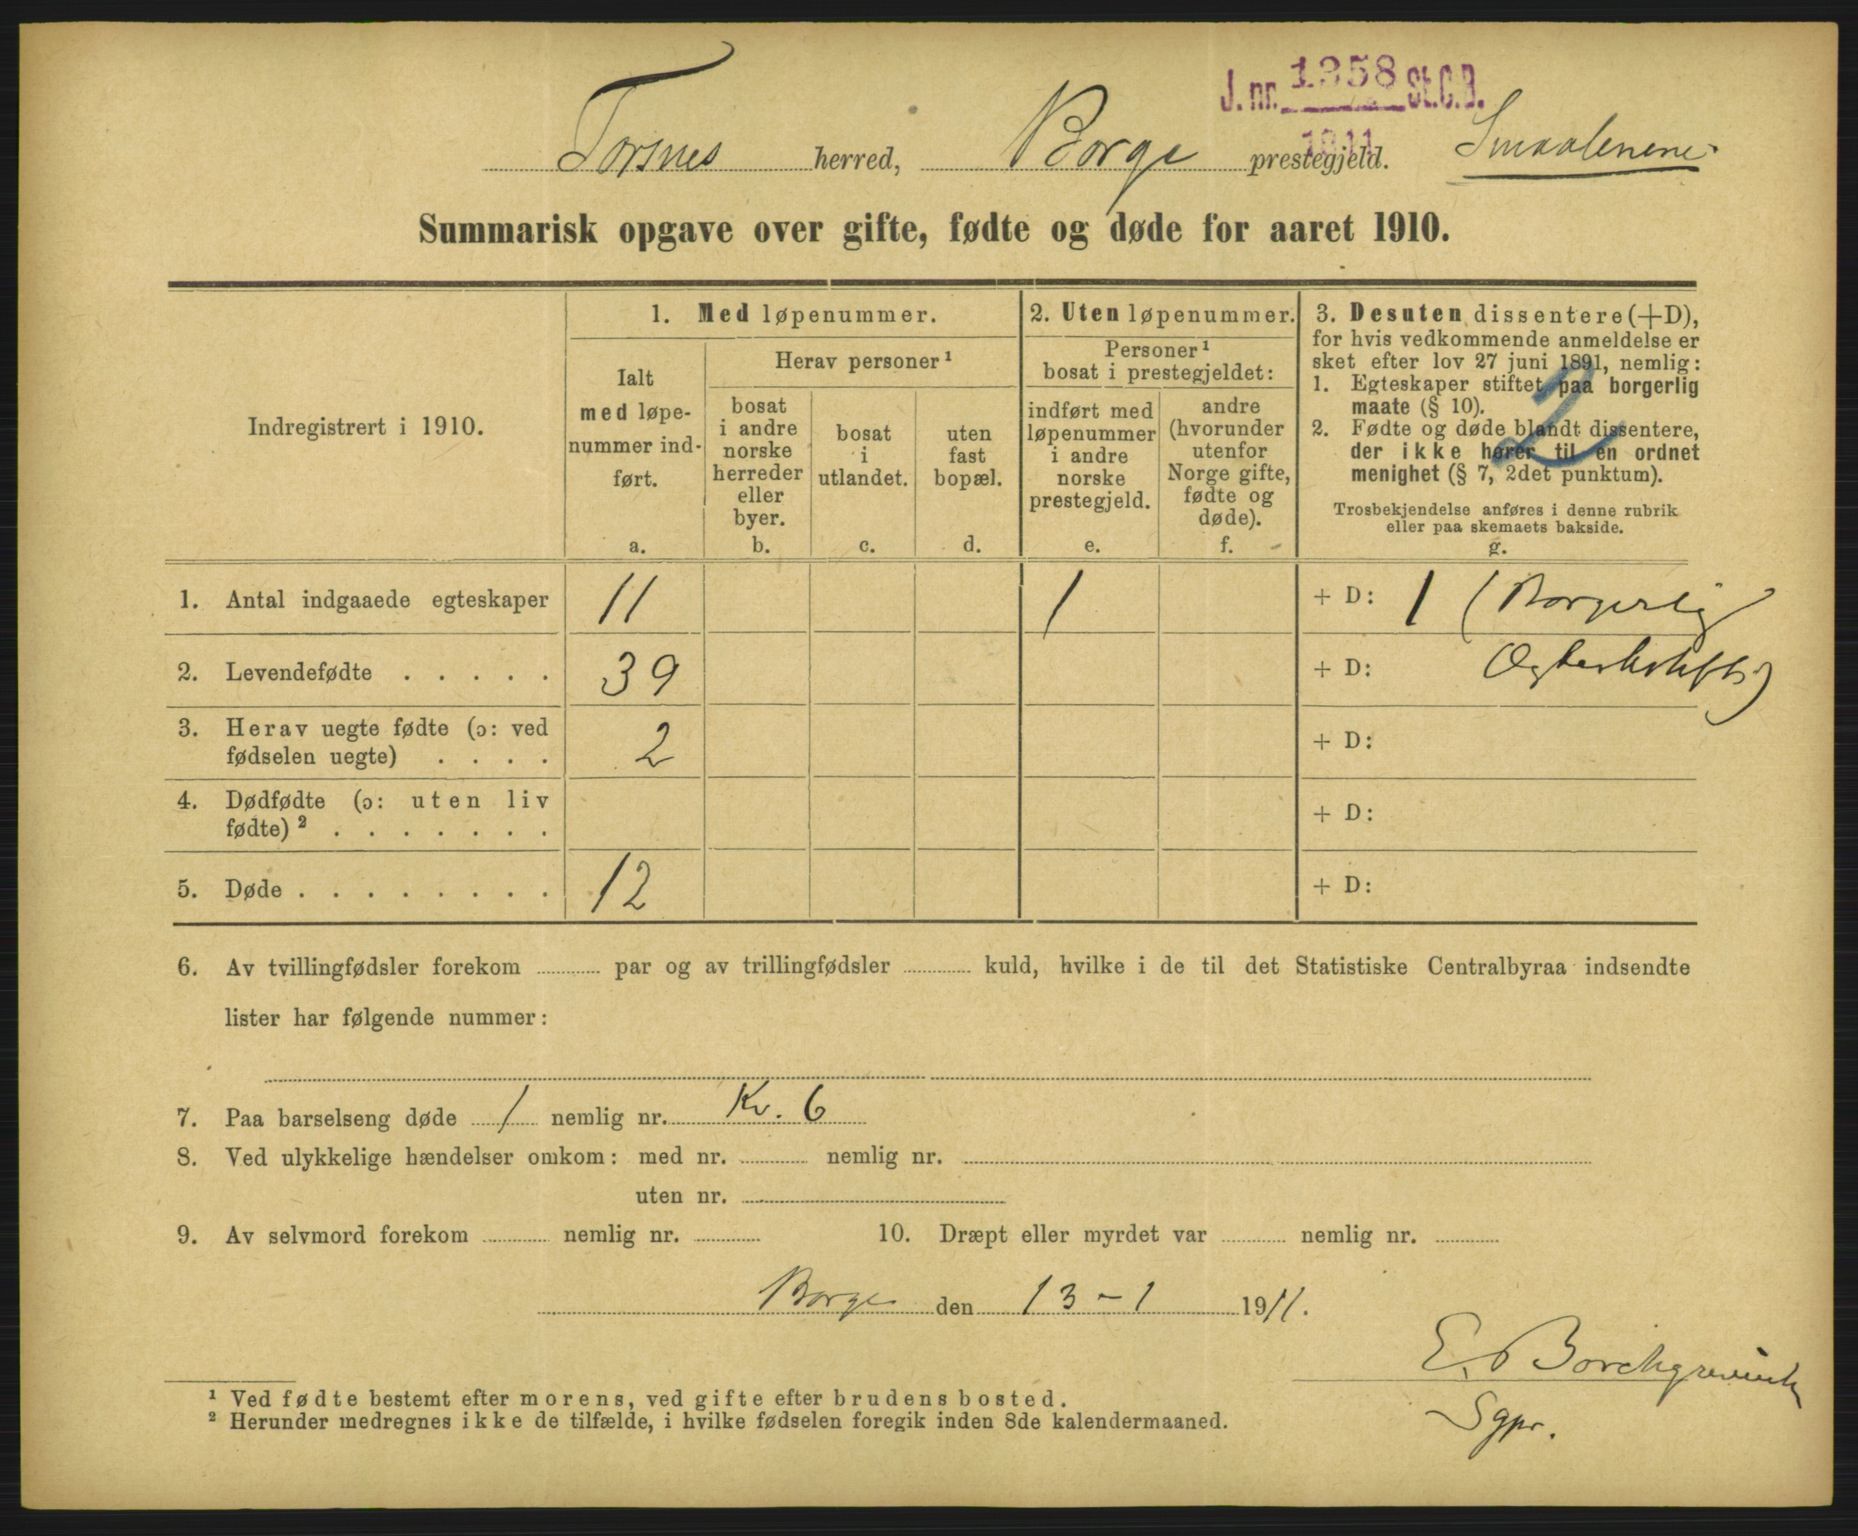 J. nr. 1358 St.C.B.
1911
Torsnes herred, Borge prestegjeld. Smaalenene
Summarisk opgave over gifte, fødte og døde for aaret 1910.
Indregistrert i 1910.
1. Med løpenummer.
Ialt
med løpe-
nummer ind-
ført.
a.
Herav personer ¹
bosat
i andre
norske
herreder
eller
byer.
b.
bosat
i
utlandet.
c.
uten
fast
bopæl.
d.
2. Uten løpenummer.
Personer ¹
bosat i prestegjeldet:
indført med
løpenummer
i andre
norske
prestegjeld.
e.
andre
(hvorunder
utenfor
Norge gifte,
fødte og
døde).
f.
3. Desuten dissentere (+D),
for hvis vedkommende anmeldelse er
sket efter lov 27 juni 1891, nemlig:
1. Egteskaper stiftet paa borgerlig
maate (§ 10).
2. Fødte og døde blandt dissentere,
der ikke hører til en ordnet
menighet (§ 7, 2det punktum).
Trosbekjendelse anføres i denne rubrik
eller paa skemaets bakside.
g.
2
1. Antal indgaaede egteskaper 11 1 + D: 1 (Borgerlig
2. Levendefødte . . . . . 39 + D:
3. Herav uegte fødte (ɔ: ved
fødselen uegte) . . . . 2 + D:
4. Dødfødte (ɔ: uten liv
fødte) ² . . . . . . . + D:
5. Døde . . . . . . . . 12 + D:
6. Av tvillingfødsler forekom par og av trillingfødsler kuld, hvilke i de til det Statistiske Centralbyraa indsendte
lister har følgende nummer:
7. Paa barselseng døde 1 nemlig nr. Kv. 6
8. Ved ulykkelige hændelser omkom: med nr. nemlig nr.
uten nr.
9. Av selvmord forekom nemlig nr. 10. Dræpt eller myrdet var nemlig nr.
Borge den 13 - 1 1911.
E. Borchgrevink
Sgpr.
¹ Ved fødte bestemt efter morens, ved gifte efter brudens bosted.
² Herunder medregnes ikke de tilfælde, i hvilke fødselen foregik inden 8de kalendermaaned.